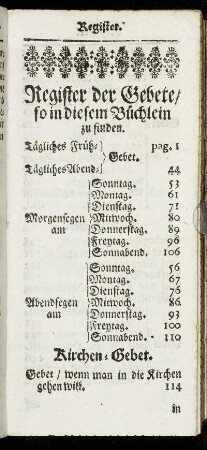 Register.
Register der Gebete/
so in diesem Büchlein
zu finden.
Tägliches Früh- } Gebet. pag. 1
Tägliches Abend- } 44
Sonntag. 53
Montag. 61
Dienstag. 71
Morgensegen Mitwoch. 80
am Donnerstag. 89
Freytag. 96
Sonnabend. 106
Sonntag. 56
Montag. 67
Dienstag. 76
Abendsegen Mitwoch. 86
am Donnerstag. 93
Freytag. 100
Sonnabend. 110
Kirchen-Gebet.
Gebet / wenn man in die Kirchen
gehen will. 114
in